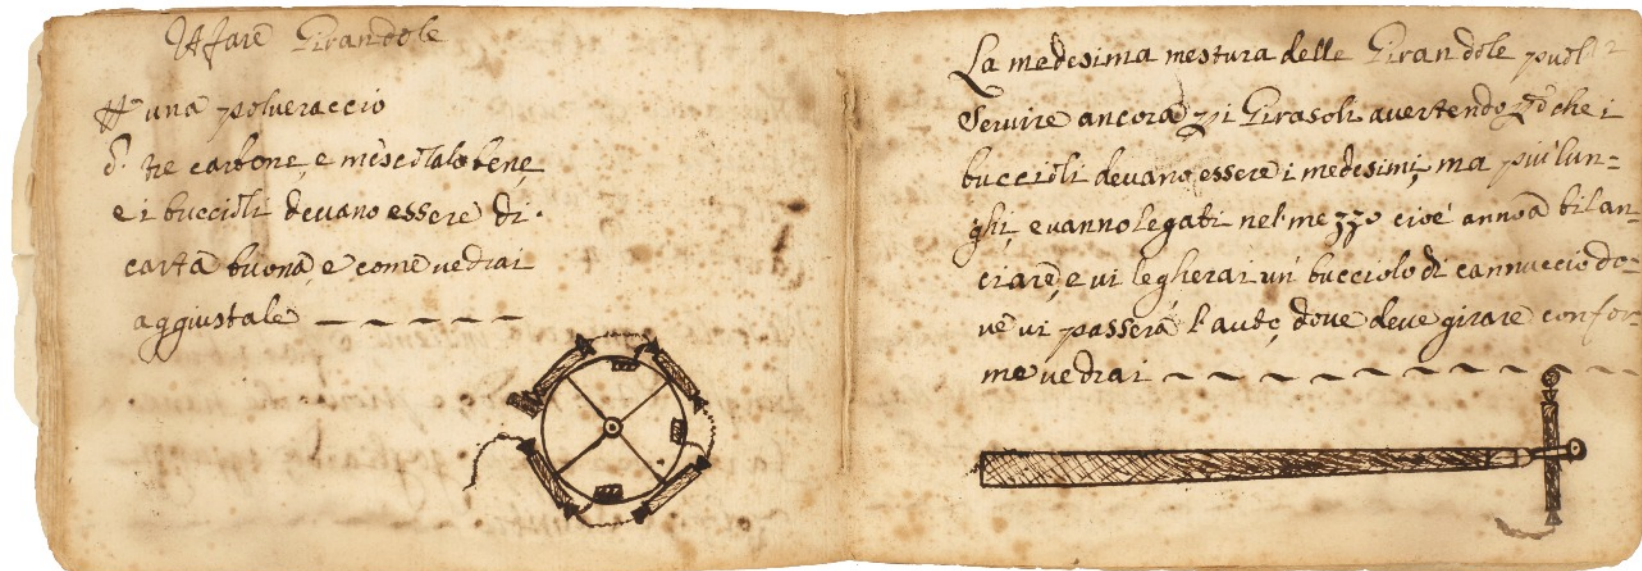 A fare Girandole
una polueraccio
tre carbone, e mescolalo bene,
e i buccioli deuano essere di
carta buona, e come uedrai
aggiustale
La medesima mestura delle Girandole puol
Seruire ancora pi Girasoli auertendo però che i
buccioli deuano essere i medesimi, ma piu lun=
ghi, e uanno legati nel mezzo cioé anno a bilan=
ciare, e ui legherai un bucciolo di cannuccia do=
ue ui passerá l'aute, doue deue girare confor=
me uedrai